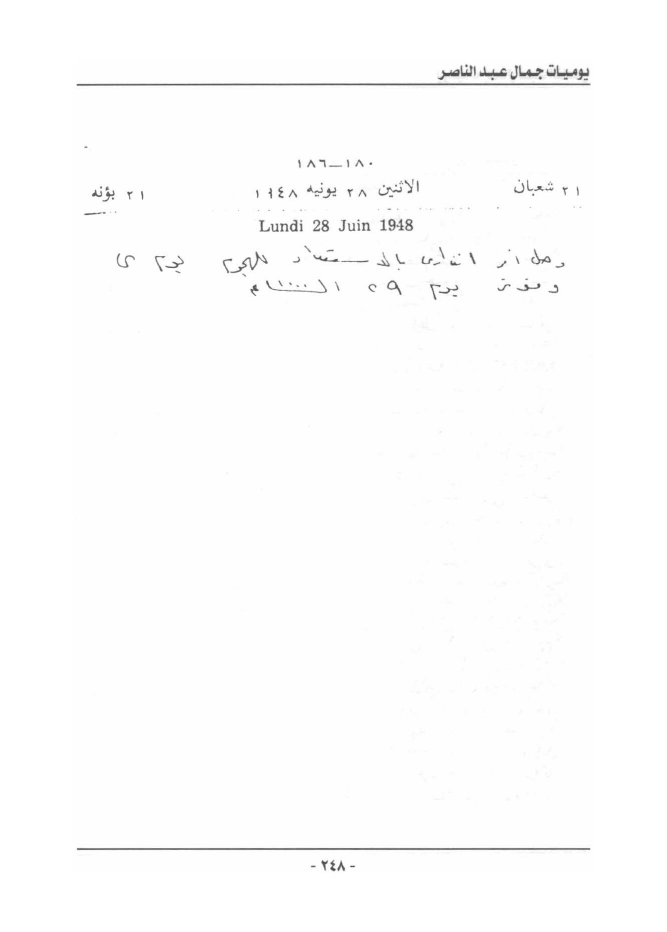 يوميات جمال عبد الناصر
١٨٠—١٨٦
٢١ شعبان الاثنين ٢٨ يونيه ١٩٤٨ ٢١ بؤنه
Lundi 28 Juin 1948
وصل أمر انذارى بالاستعداد للهجوم يوم ى
يوم ٢٩ الساعة ١٠٠٠
- ٢٤٨ -